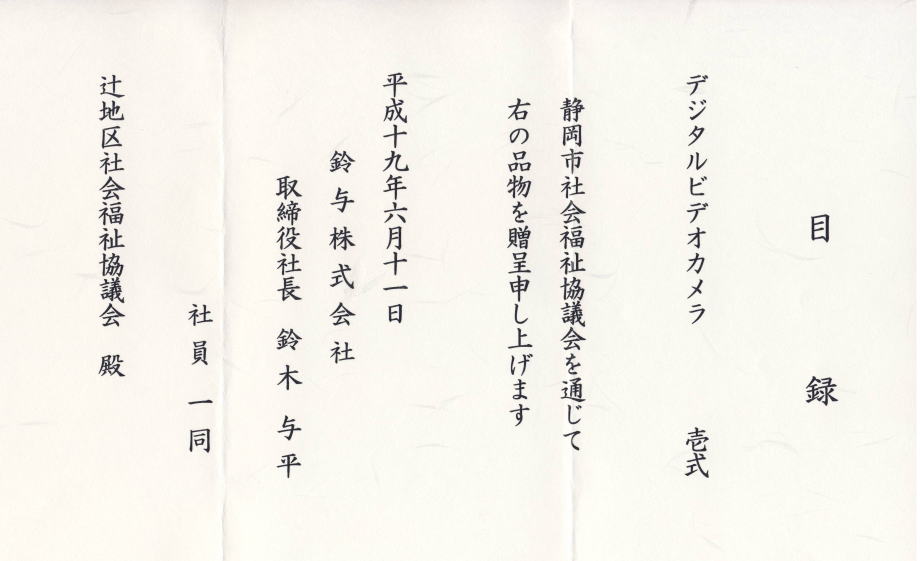 目録
デジタルビデオカメラ 壱式
静岡市社会福祉協議会を通じて
右の品物を贈呈申し上げます
平成十九年六月十一日
鈴与株式会社
取締役社長 鈴木与平
社員一同
辻地区社会福祉協議会 殿